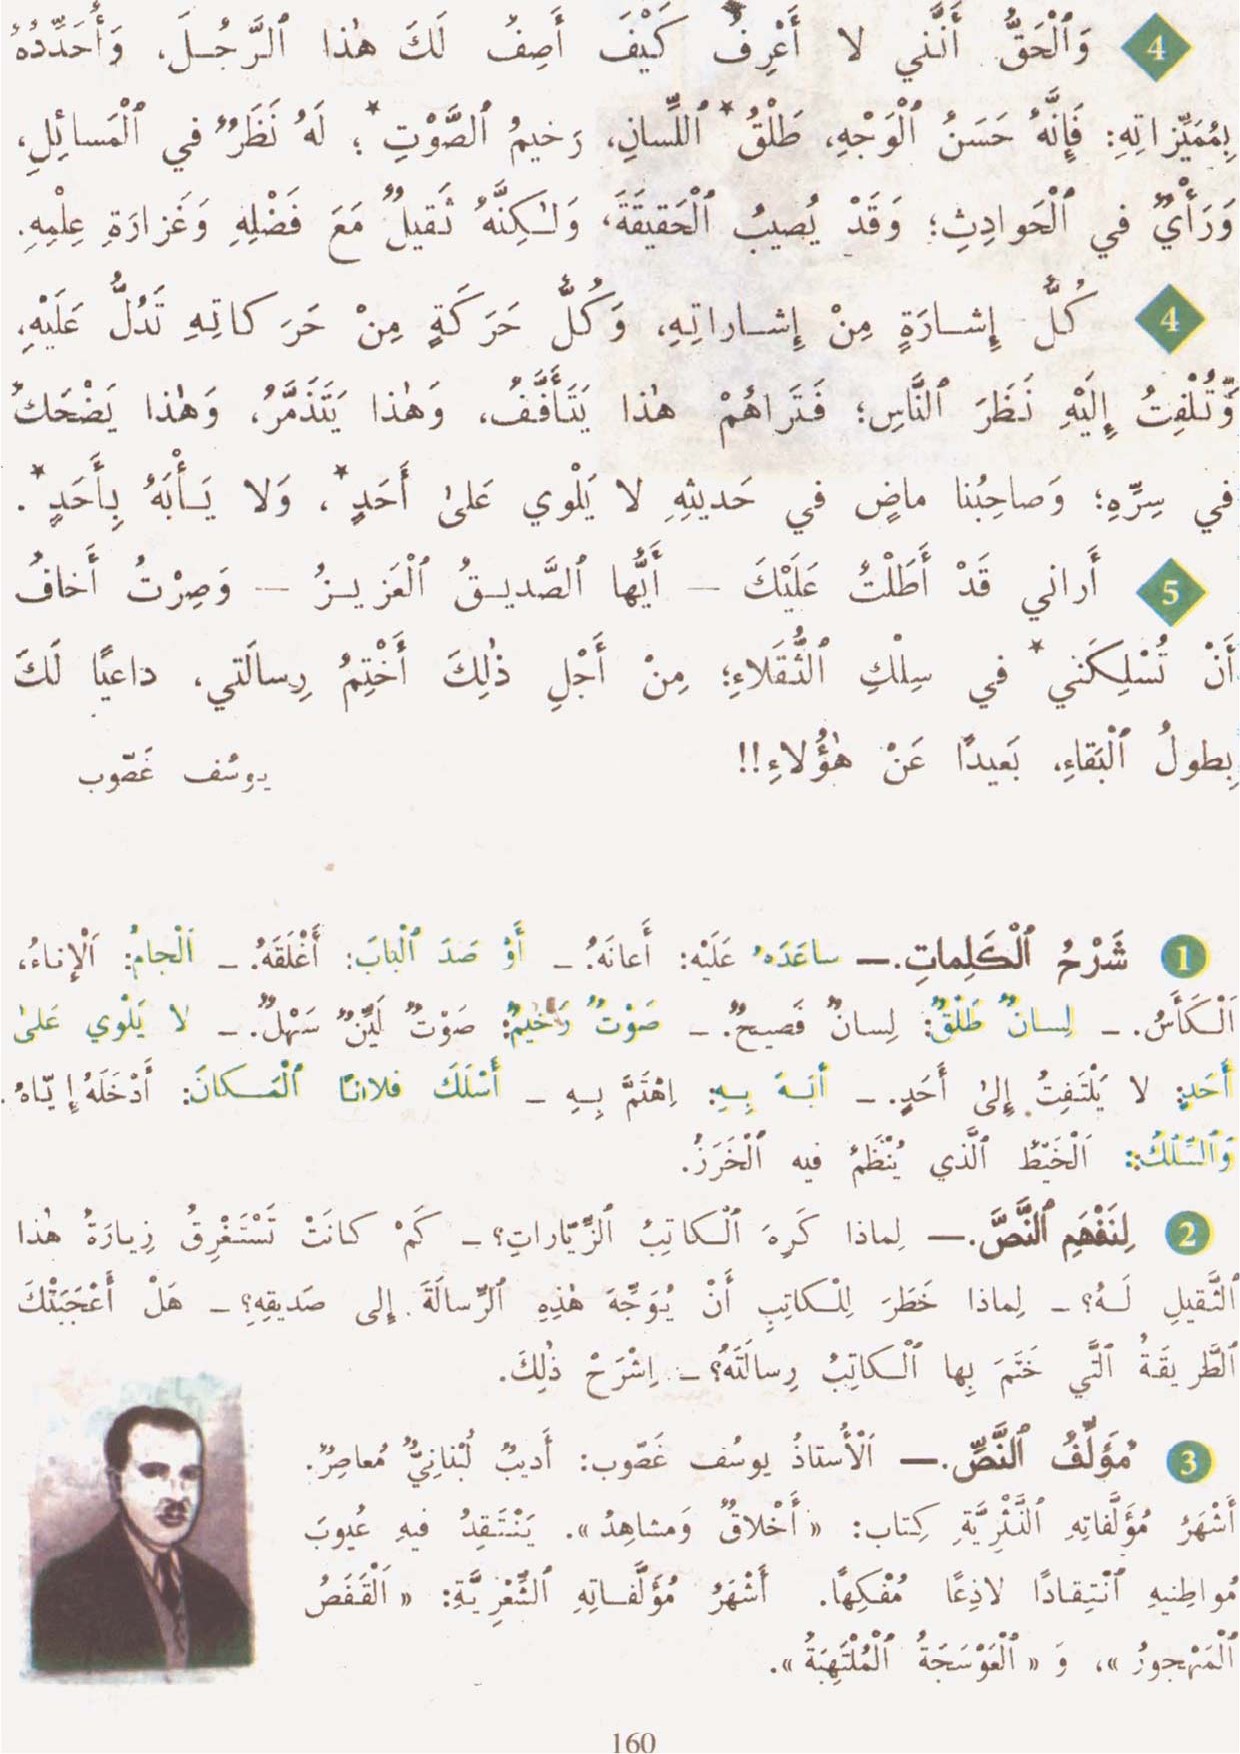 4 وَٱلْحَقُّ أَنَّني لا أَعْرِفُ كَيْفَ أَصِفُ لَكَ هٰذا ٱلرَّجُلَ، وَأُحَدِّدُهُ
بِمُمَيِّزاتِهِ: فَإِنَّهُ حَسَنُ ٱلْوَجْهِ، طَلْقُ* ٱللِّسانِ، رَخيمُ ٱلصَّوْتِ*؛ لَهُ نَظَرٌ في ٱلْمَسائِلِ،
وَرَأْيٌ في ٱلْحَوادِثِ؛ وَقَدْ يُصيبُ ٱلْحَقيقَةَ، وَلٰكِنَّهُ ثَقيلٌ مَعَ فَضْلِهِ وَغَزارَةِ عِلْمِهِ.
4 كُلُّ إِشارَةٍ مِنْ إِشاراتِهِ، وَكُلُّ حَرَكَةٍ مِنْ حَرَكاتِهِ تَدُلُّ عَلَيْهِ،
وَتُلْفِتُ إِلَيْهِ نَظَرَ ٱلنَّاسِ؛ فَتَراهُمْ هٰذا يَتَأَفَّفُ، وَهٰذا يَتَذَمَّرُ، وَهٰذا يَضْحَكُ
في سِرِّهِ؛ وَصاحِبُنا ماضٍ في حَديثِهِ لا يَلْوي عَلىٰ أَحَدٍ*، وَلا يَأْبَهُ بِأَحَدٍ*.
5 أَراني قَدْ أَطَلْتُ عَلَيْكَ – أَيُّها ٱلصَّديقُ ٱلْعَزيزُ – وَصِرْتُ أَخافُ
أَنْ تُسْلِكَني* في سِلْكِ ٱلثُّقَلاءِ؛ مِنْ أَجْلِ ذٰلِكَ أَخْتِمُ رِسالَتي، داعيًا لَكَ
بِطولُ ٱلْبَقاءِ، بَعيدًا عَنْ هٰؤُلاءِ!!
يوسُف غَصّوب
1 شَرْحُ ٱلْكَلِماتِ.— ساعَدَهُ عَلَيْهِ: أَعانَهُ. – أَوْ صَدَ ٱلْبابَ: أَغْلَقَهُ. – اَلْجامُ: اَلْإِناءُ،
اَلْكَأْسُ. – لِسانٌ طَلْقٌ: لِسانٌ فَصيحٌ. – صَوْتٌ رَخيمٌ: صَوْتٌ لَيِّنٌ سَهْلٌ. – لا يَلْوي عَلىٰ
أَحَدٍ: لا يَلْتَفِتُ إِلىٰ أَحَدٍ. – أَبَهَ بِهِ: اِهْتَمَّ بِهِ – أَسْلَكَ فلانًا ٱلْمَكانَ: أَدْخَلَهُ إِيّاهُ.
وَٱلسِّلْكُ: اَلْخَيْطُ ٱلَّذي يُنْظَمُ فيه ٱلْخَرَزُ.
2 لِنَفْهَمِ ٱلنَّصَّ.— لِماذا كَرِهَ ٱلْكاتِبُ ٱلزِّيّاراتِ؟ – كَمْ كانَتْ تَسْتَغْرِقُ زِيارَةُ هٰذا
ٱلثَّقيلِ لَهُ؟ – لِماذا خَطَرَ لِلْكاتِبِ أَنْ يُوَجِّهَ هٰذِهِ ٱلرِّسالَةَ إِلى صَديقِهِ؟ – هَلْ أَعْجَبَتْكَ
ٱلطَّريقَةُ ٱلَّتي خَتَمَ بِها ٱلْكاتِبُ رِسالَتَهُ؟ – اِشْرَحْ ذٰلِكَ.
3 مُؤَلِّفُ ٱلنَّصِّ.— اَلْأُستاذُ يوسُف غَصّوب: أَديبٌ لُبْنانِيٌّ مُعاصِرٌ.
أَشْهَرُ مُؤَلَّفاتِهِ ٱلنَّثْرِيَّةِ كِتاب: «أَخْلاقٌ وَمشاهِدُ». يَنْتَقِدُ فيهِ عُيوبَ
مُواطِنيهِ ٱنْتِقادًا لاذِعًا مُفْكِهًا. أَشْهَرُ مُؤَلَّفاتِهِ ٱلشِّعْرِيَّةِ: «اَلْقَفَصُ
ٱلْمَهْجورُ»، وَ «ٱلْعَوْسَجَةُ ٱلْمُلْتَهِبَةُ».
160